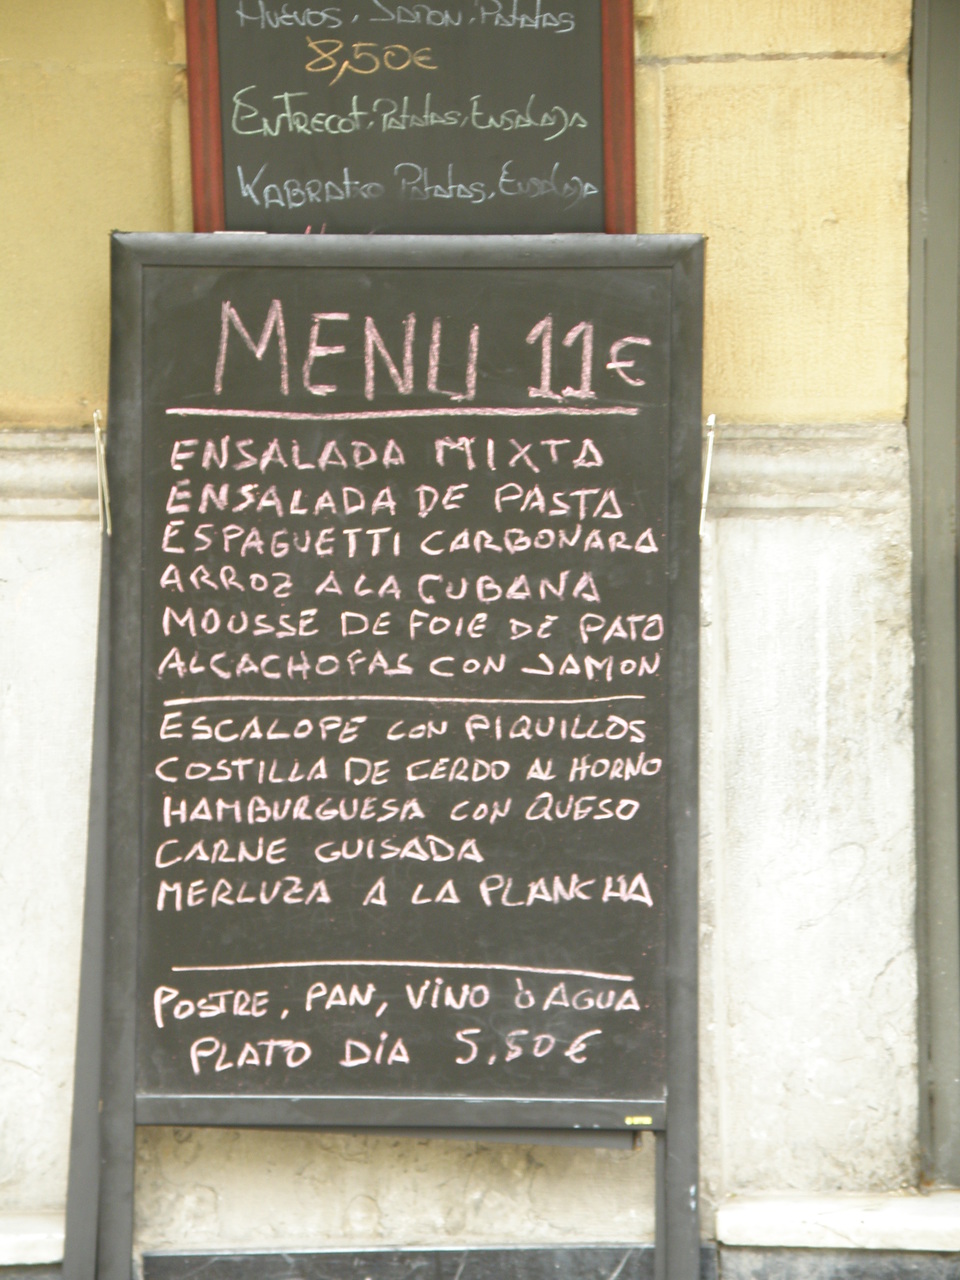 HUEVOS, JAMON, PATATAS
8,50€
ENTRECOT, PATATAS, ENSALADA
KABRATXO PATATAS, ENSALADA
MENU 11€
ENSALADA MIXTA
ENSALADA DE PASTA
ESPAGUETTI CARBONARA
ARROZ A LA CUBANA
MOUSSE DE FOIE DE PATO
ALCACHOFAS CON JAMON
ESCALOPE CON PIQUILLOS
COSTILLA DE CERDO AL HORNO
HAMBURGUESA CON QUESO
CARNE GUISADA
MERLUZA A LA PLANCHA
POSTRE, PAN, VINO Ò AGUA
PLATO DIA 5,50€